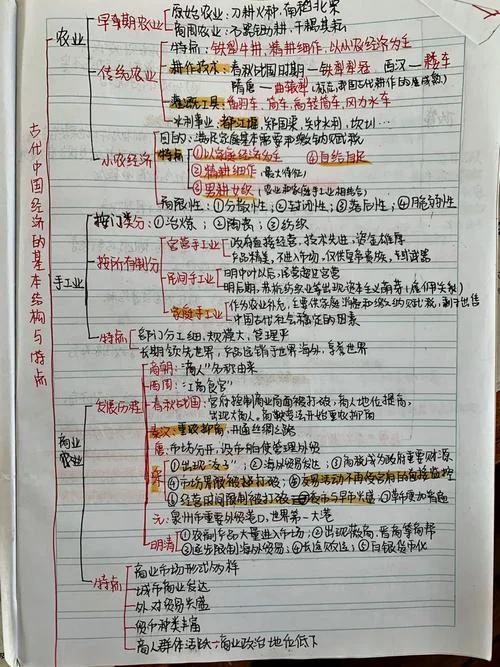 古代中国经济的基本结构与特点
农业
早期农业
原始农业：刀耕火种，南稻北粟
商周农业：石器锄耕，千耦其耘
传统农业
特点：铁犁牛耕，精耕细作，以小农经济为主
耕作技术：春秋战国时期—铁犁犁耕 西汉—耧车
隋唐—曲辕犁
灌溉工具：翻车，筒车，高转筒车，风力水车
水利事业：都江堰，郑国渠，关中水利，坎井…
小农经济
目的：满足家庭基本需要和缴纳赋税
特点
①以家庭经济为主 ④自给自足
②精耕细作（最大特征）
③男耕女织（农业和家庭手工业相结合）
局限性：①分散性；②封闭性；③落后性；④脆弱性
手工业
按门类分：①冶炼；②陶瓷；③纺织
按所有制分
官营手工业
政府直接经营，技术先进，资金雄厚
产品精美，不进入市场，仅供皇帝贵族、
民间手工业
明中叶以后，
明后期，苏杭纺织业等出现资本主义萌芽（雇佣关系）
家庭手工业
作为农业补充，主要供家庭消费和缴纳赋税，剩余出售
中国古代社会稳定的因素
特点
部门分工细，规模大，管理严
长期领先世界，产品远销于世界海外，享誉世界
商业
农业
发展历程
商朝：“商人”名称由来
西周：“工商食官”
春秋战国：官府控制商业局面被打破，商人地位提高，
出现大商人。商鞅变法开始重农抑商
秦汉：重农抑商，开通丝绸之路
唐：市场分开，设市舶使管理外贸
宋
①出现“交子”；②海外贸易发达；③商税成为政府重要财源
④市场界限被打破；⑤交易活动不再受官府的直接监控
⑥经营时间限制被打破 ⑦夜市与早市兴盛；⑧草市
元：泉州市重要外贸港口，世界第一大港
明清
①农副产品大量进入市场；②出现徽商、晋商等商帮
③逐步限制海外贸易；④长途贩运；⑤白银货币化
特点
商业市场形式多样
城市商业发达
外对贸易兴盛
货币种类丰富
商人群体活跃；商业政治地位低下